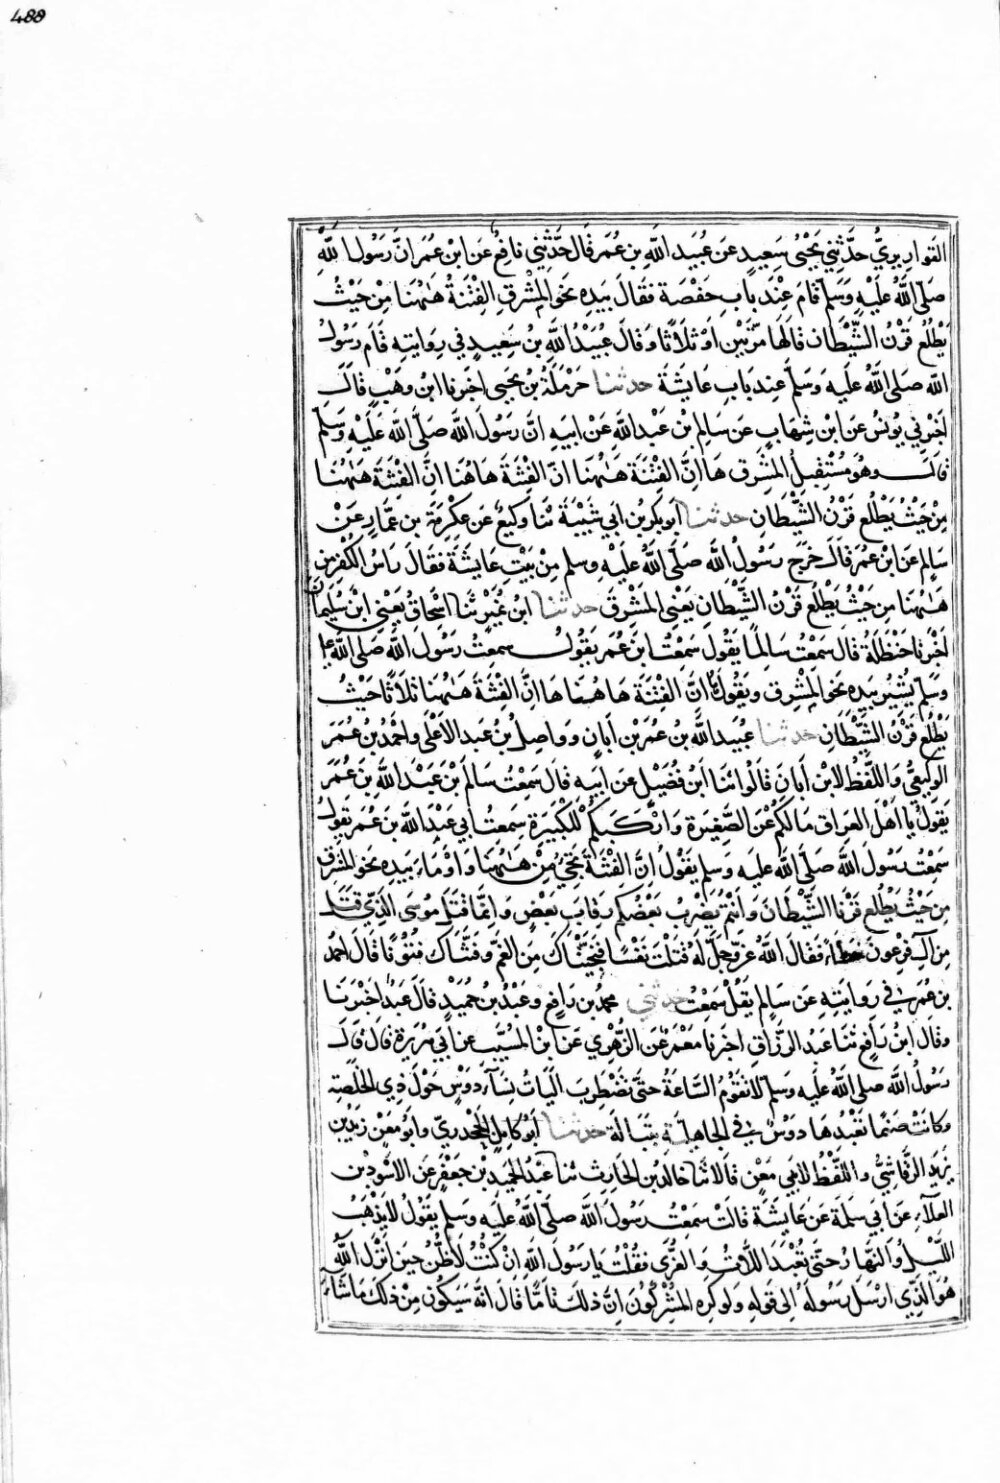 488
القواريري حدثني يحيى سعيد عن عبيد الله بن عمر قال حدثني نافع عن ابن عمر ان رسول الله
صلى الله عليه وسلم قام عند باب حفصة فقال بيده نحو المشرق الفتنة هاهنا من حيث
يطلع قرن الشيطان قالها مرتين او ثلاثا وقال عبيد الله بن سعيد في روايته قام رسول
الله صلى الله عليه وسلم عند باب عايشة حدثنا حرملة بن يحيى اخبرنا ابن وهب قال
اخبرني يونس عن ابن شهاب عن سالم بن عبد الله عن ابيه ان رسول الله صلى الله عليه وسلم
قال وهو مستقبل المشرق ها ان الفتنة هاهنا ان الفتنة هاهنا ان الفتنة هاهنا
من حيث يطلع قرن الشيطان حدثنا ابو بكر بن ابي شيبة ثنا وكيع عن عكرمة بن عمار عن
سالم عن ابن عمر قال خرج رسول الله صلى الله عليه وسلم من بيت عايشة فقال راس الكفر من
هاهنا من حيث يطلع قرن الشيطان يعني المشرق حدثنا ابن نمير ثنا اسحاق يعني ابن سليمان
اخبرنا حنظلة قال سمعت سالما يقول سمعت ابن عمر يقول سمعت رسول الله صلى الله عليه
وسلم يشير بيده نحو المشرق ويقول ها ان الفتنة هاهنا ها ان الفتنة هاهنا ثلاثا حيث
يطلع قرن الشيطان حدثنا عبيد الله بن عمر بن ابان وواصل بن عبد الاعلى واحمد بن عمر
الوكيعي واللفظ لابن ابان قالوا ثنا ابن فضيل عن ابيه قال سمعت سالم بن عبد الله بن عمر
يقول يا اهل العراق ما لكم عن الصغيرة واركبكم للكبيرة سمعت ابي عبد الله بن عمر يقول
سمعت رسول الله صلى الله عليه وسلم يقول ان الفتنة تجيء من هاهنا واوماء بيده نحو المشرق
من حيث يطلع قرنا الشيطان وانتم يضرب بعضكم رقاب بعض وانما قتل موسى الذي قتل
من آل فرعون خطأ فقال الله عز وجل له قتلت نفسا فنجيناك من الغم وفتناك فتونا قال احمد
بن عمر في روايته عن سالم يقل سمعت حدثني محمد بن رافع وعبد بن حميد قال عبد اخبرنا
وقال ابن رافع ثنا عبد الرزاق اخبرنا معمر عن الزهري عن ابن المسيب عن ابي هريرة قال قال
رسول الله صلى الله عليه وسلم لا تقوم الساعة حتى تضطرب اليات نساء دوس حول ذي الخلصة
وكانت صنما تعبدها دوس في الجاهلية بتبالة حدثنا ابو كامل الجحدري وابو معن زيد بن
يزيد الرقاشي واللفظ لابي معن قالا ثنا خالد بن الحارث ثنا عبد الحميد بن جعفر عن الاسود بن
العلاء عن ابي سلمة عن عايشة قالت سمعت رسول الله صلى الله عليه وسلم يقول لا يذهب
الليل والنهار حتى تعبد اللات والعزى فقلت يا رسول الله ان كنت لاظن حين انزل الله
هو الذي ارسل رسوله الى قوله ولو كره المشركون ان ذلك تاما قال انه سيكون من ذلك ما شاء